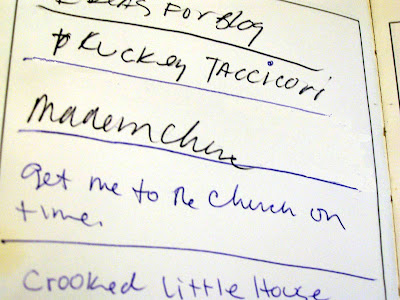 IDEAS FOR Blog
KUCKEY TACCICORI
get me to the church on
time.
Crooked Little House